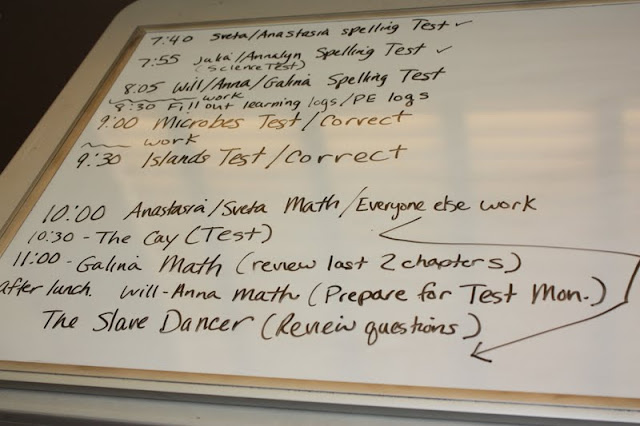 7:40 Sveta/Anastasia spelling Test ✓
7:55 Jukai/Annalyn Spelling Test ✓
(Science Test)
8:05 Will/Anna/Galina Spelling Test
work
8:30 Fill out learning logs/PE logs
9:00 Microbes Test/Correct
work
9:30 Islands Test/Correct
10:00 Anastasia/Sveta Math/Everyone else work
10:30 - The Cay (Test)
11:00 - Galina Math (review last 2 chapters)
after lunch. Will-Anna Math (Prepare for Test Mon.)
The Slave Dancer (Review questions)